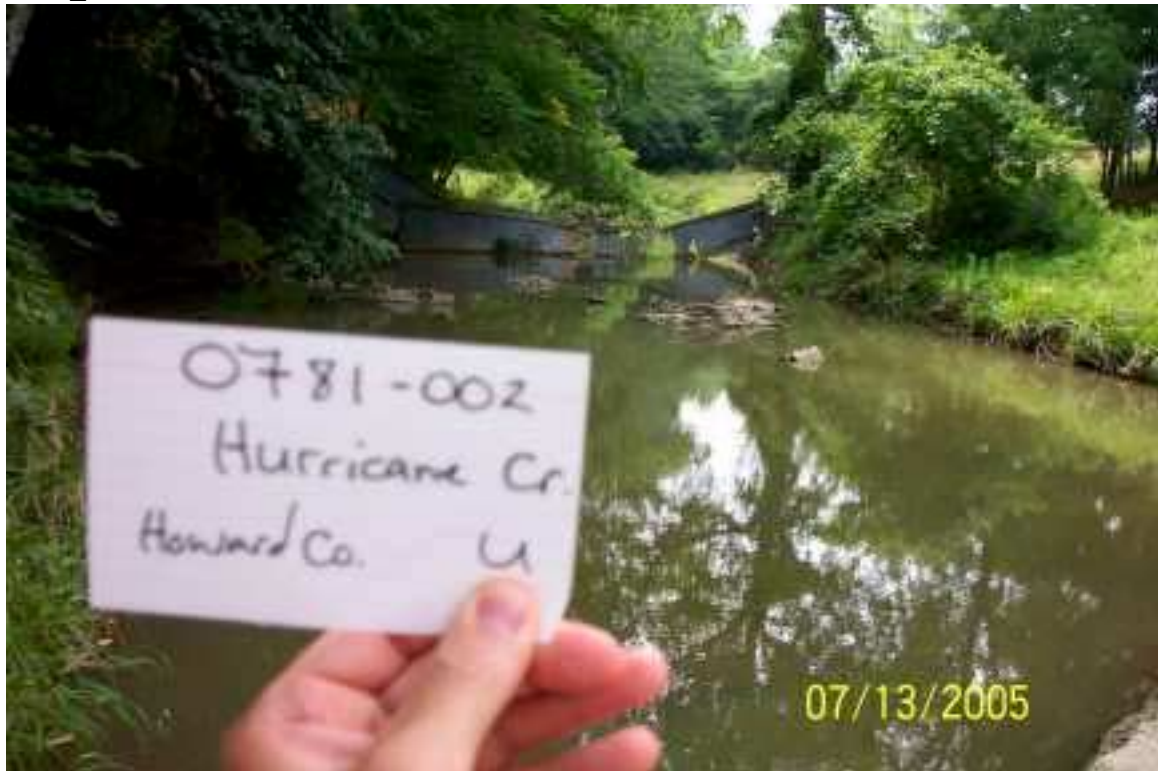 0781-002
Hurricane Cr.
Howard Co. U
07/13/2005